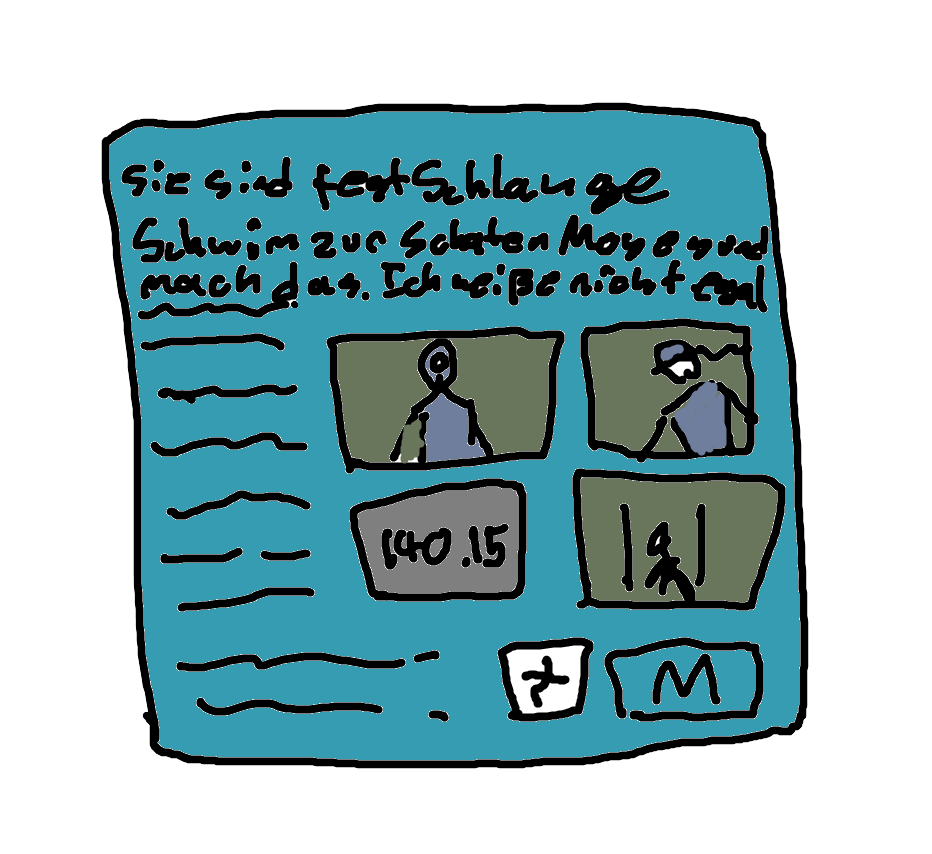 Sie sind fest Schlange
Schwim zur Schaten Moses und
mach das. Ich weiße nicht egal
140.15
M